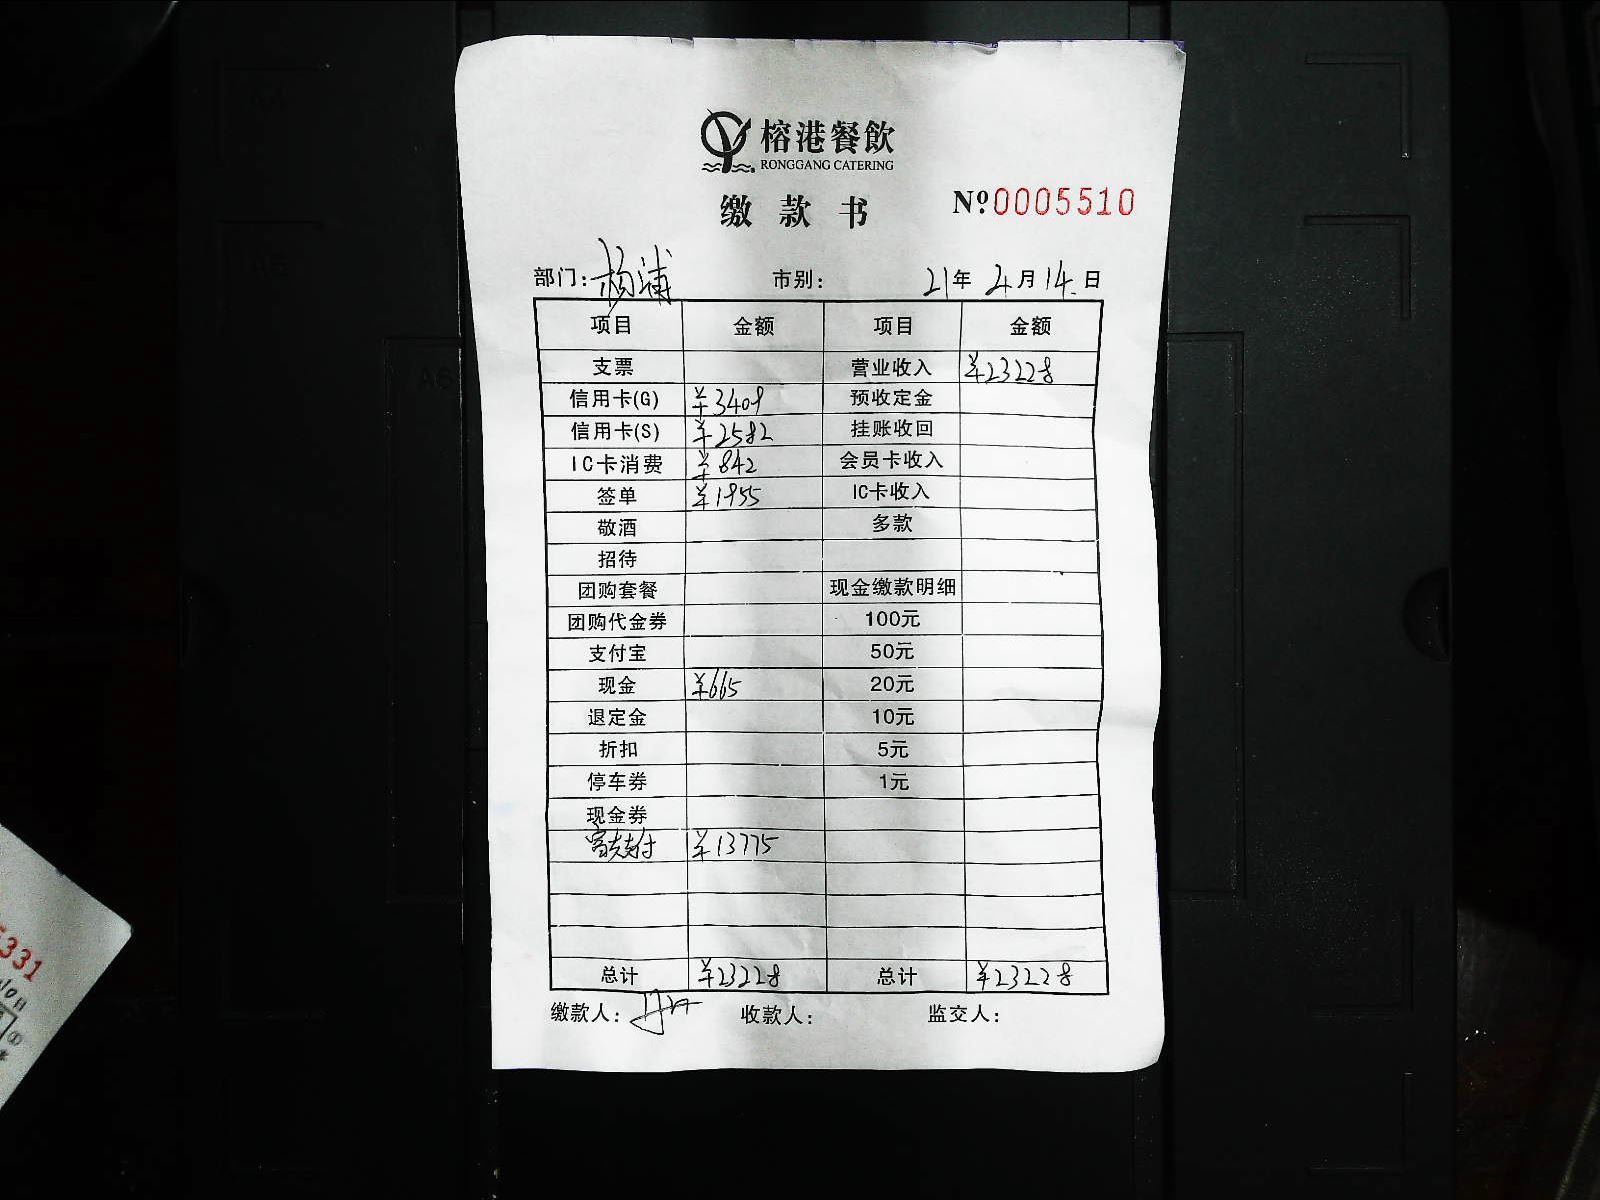 榕港餐飲
RONGGANG CATERING
缴款书
Nº 0005510
部门：杨浦 市别： 21年4月14日
项目 金额 项目 金额
支票 营业收入 ¥23228
信用卡(G) ¥3409 预收定金
信用卡(S) ¥2582 挂账收回
IC卡消费 ¥842 会员卡收入
签单 ¥1955 IC卡收入
敬酒 多款
招待
团购套餐 现金缴款明细
团购代金券 100元
支付宝 50元
现金 ¥665 20元
退定金 10元
折扣 5元
停车券 1元
现金券
支付 ¥13775
总计 ¥23228 总计 ¥23228
缴款人： 收款人： 监交人：
A6
331